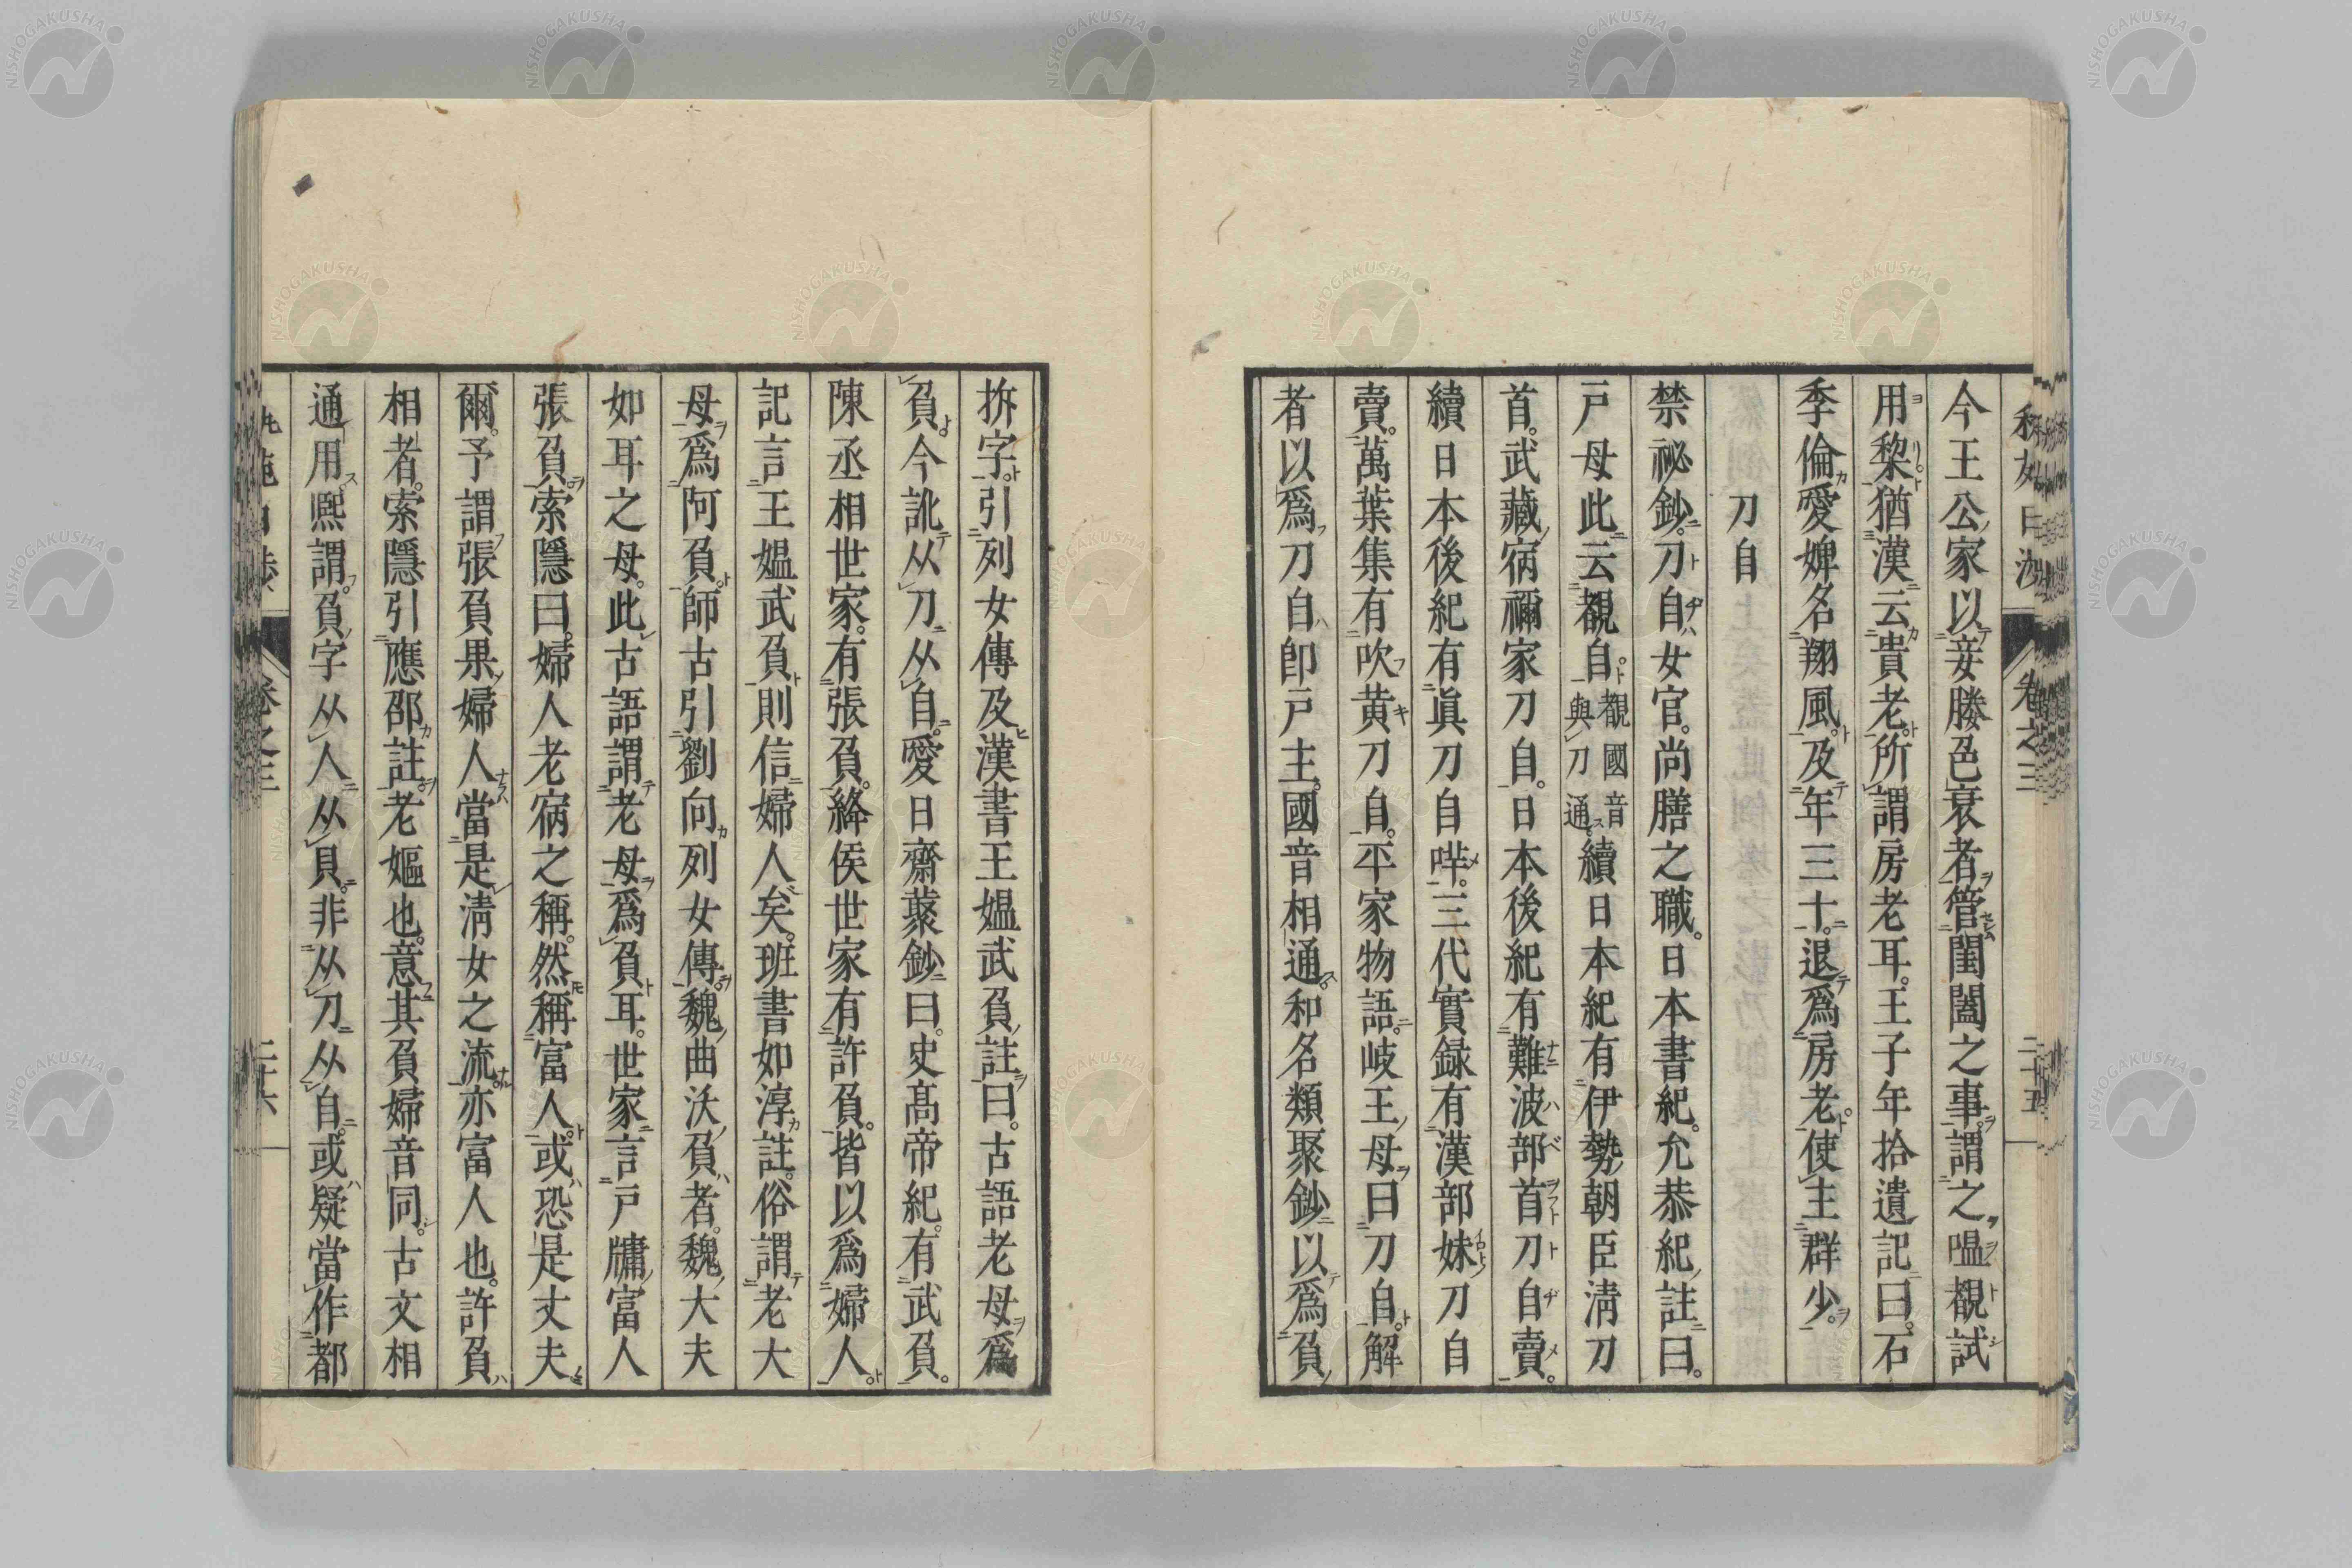 今王公家以妾媵邑衰者管閨闥之事謂之嗢覩試
用棃猶漢云貴老所謂房老耳。王子年拾遺記曰。石
季倫愛婢名翔風及年三十。退爲房老。使主群少。
刀自
禁祕鈔。刀自女官。尚膳之職。日本書紀。允恭紀註曰。
戸母此云覩自覩國音與刀通。續日本紀有伊勢朝臣淸刀
首。武藏宿禰家刀自。日本後紀有難波部首刀自賣。
續日本後紀有眞刀自咩。三代實録有漢部妹刀自
賣。萬葉集有吹黄刀自。平家物語。岐王母曰刀自。解
者以爲刀自即戸主。國音相通。和名類聚鈔以爲負
卷之三
二十五
拆字。引列女傳及漢書王媼武負註曰。古語老母爲
負。今訛从刀从自。愛日齋藂鈔曰。史髙帝紀。有武負。
陳丞相世家。有張負。絳侯世家有許負。皆以爲婦人。
記言王媼武負則信婦人矣。班書如淳註。俗謂老大
母爲阿負。師古引劉向列女傳。魏曲沃負者。魏大夫
如耳之母。此古語謂老母爲負耳。世家言戸牗富人
張負。索隱曰。婦人老宿之稱。然稱富人。或恐是丈夫
爾。予謂張負果婦人當是淸女之流。亦富人也。許負
相者。索隱引應邵註。老嫗也。意其負婦音同。古文相
通用。熈謂。負字从人从貝。非从刀从自。或疑當作都
卷之三
二十六
NISHOGAKUSHA